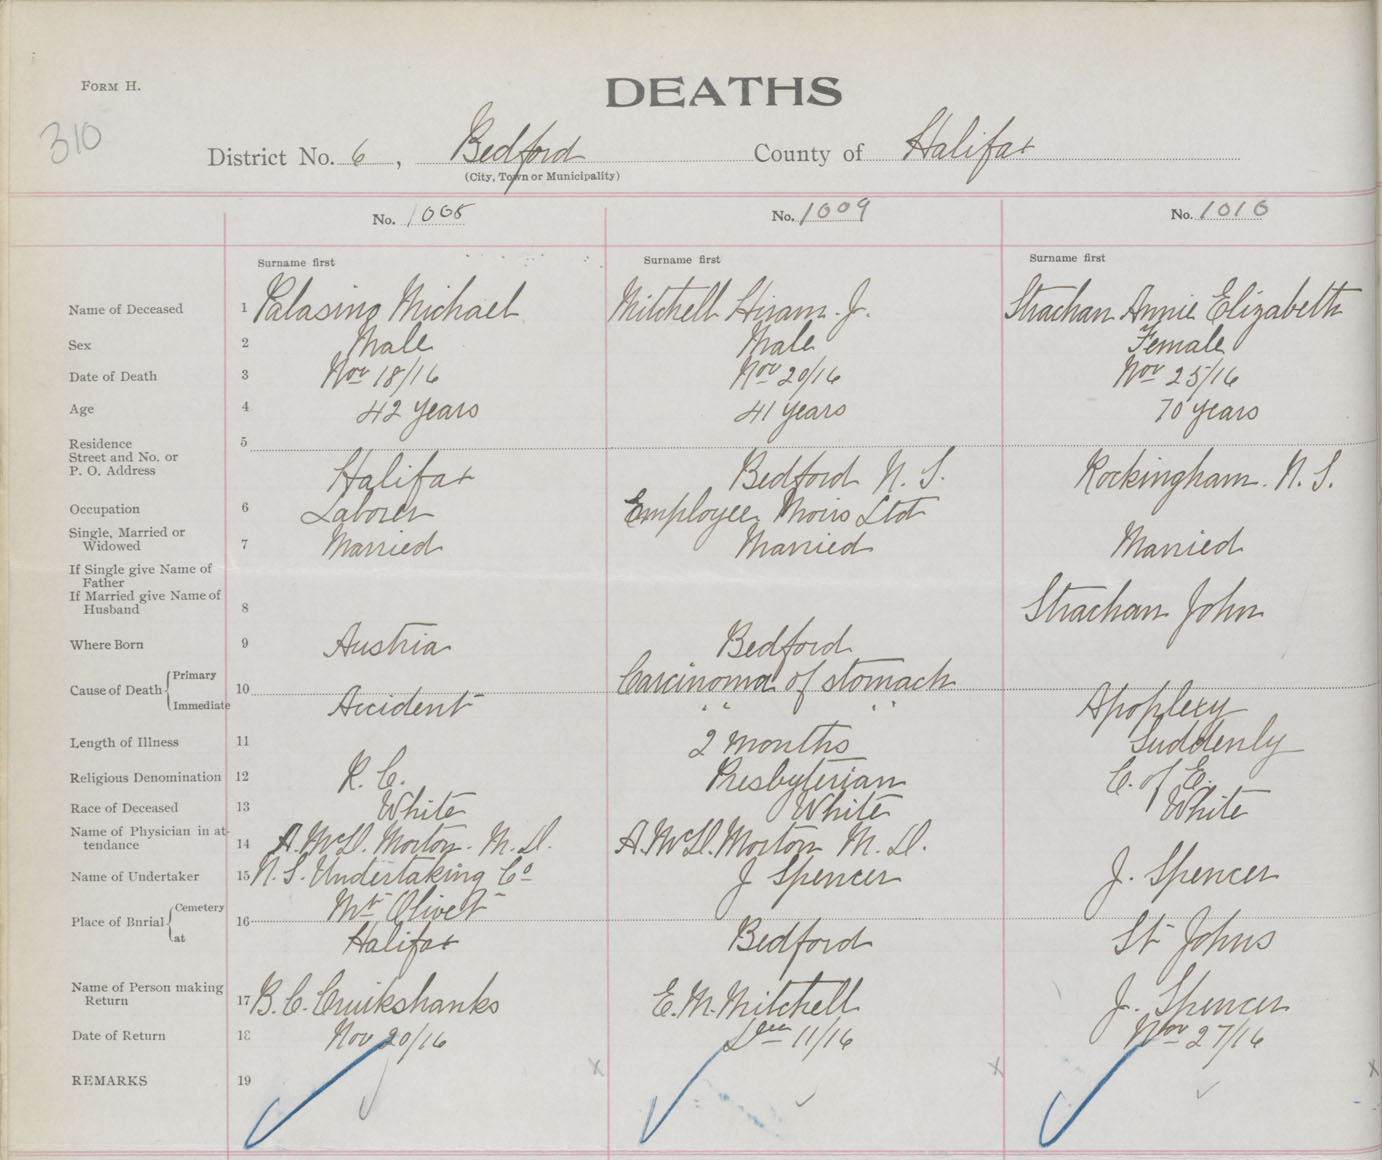 FORM H.
DEATHS
310
District No. 6, Bedford County of Halifax
(City, Town or Municipality)
No. 1008 No. 1009 No. 1010
Surname first Surname first Surname first
Name of Deceased 1 Palasino Michael Mitchell Hiram. J. Strachan Annie Elizabeth
Sex 2 Male Male Female
Date of Death 3 Nov 18/16 Nov 20/16 Nov 25/16
Age 4 42 years 41 years 70 years
Residence 5
Street and No. or
P. O. Address Halifax Bedford N. S. Rockingham. N. S.
Occupation 6 Laborer Employee Moirs Ltd
Single, Married or
Widowed 7 Married Married Married
If Single give Name of
Father
If Married give Name of
Husband 8 Strachan John
Where Born 9 Austria Bedford
Cause of Death Primary 10 Carcinoma of stomach
Immediate Accident " " " " Apoplexy
Length of Illness 11 2 months Suddenly
Religious Denomination 12 R. C. Presbyterian C. of E.
Race of Deceased 13 White White White
Name of Physician in at-
tendance 14 A. McD. Morton. M. D. A. McD. Morton M. D.
Name of Undertaker 15 N. S. Undertaking Co J Spencer J. Spencer
Place of Bnrial Cemetery 16 Mt Olivet
at Halifax Bedford St Johns
Name of Person making
Return 17 B. C. Cruikshanks E. M. Mitchell J. Spencer
Date of Return 18 Nov 20/16 Dec 11/16 Nov 27/16
REMARKS 19 x x x